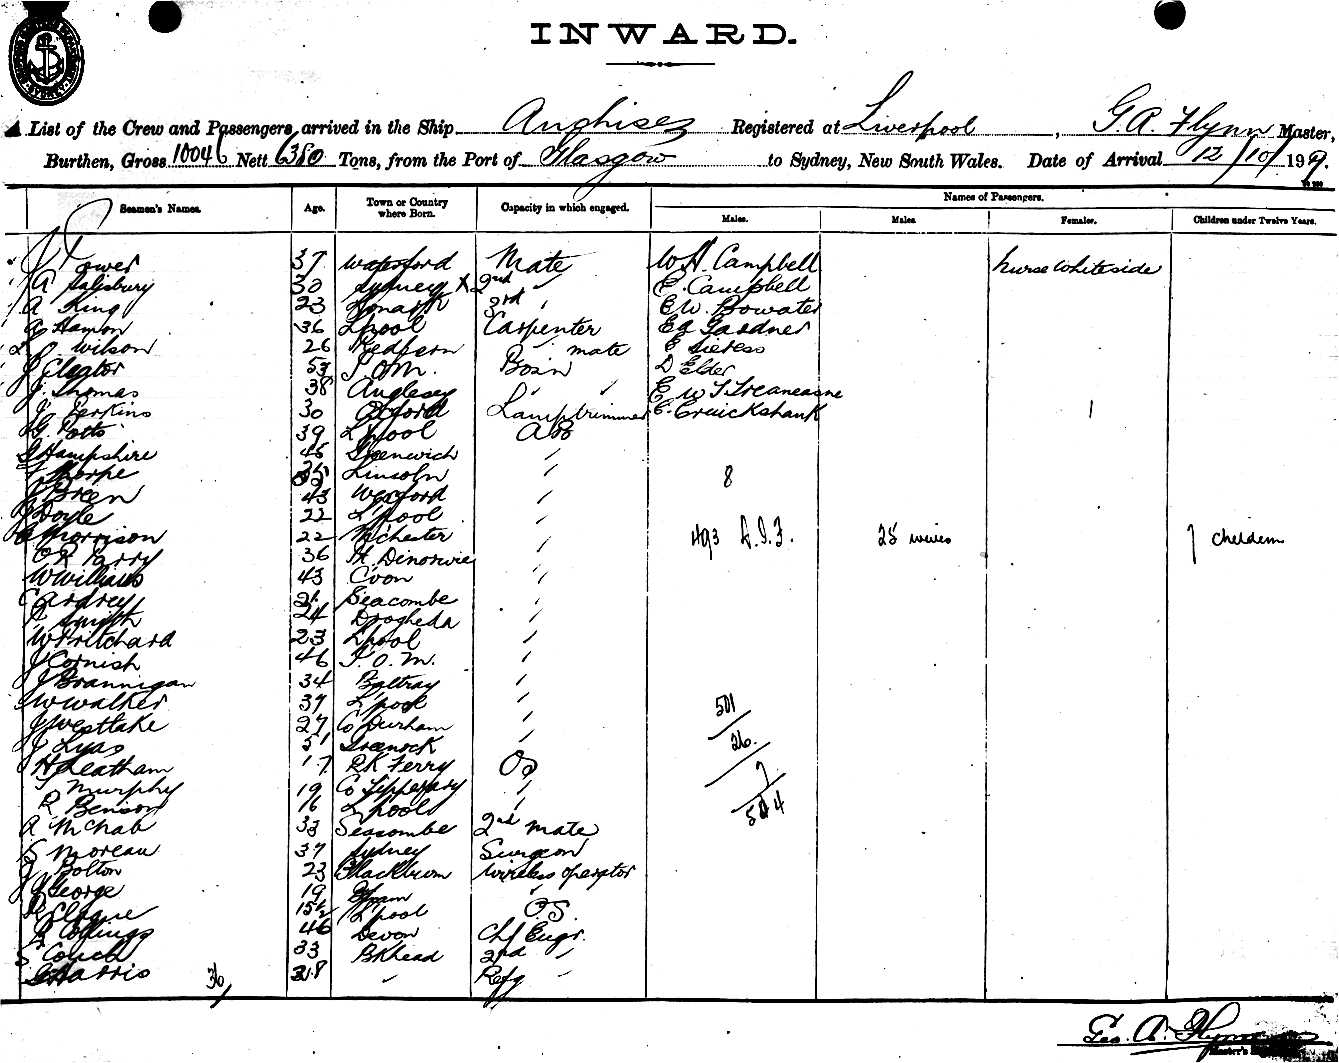 INWARD.
SYDNEY
List of the Crew and Passengers arrived in the Ship Anchises Registered at Liverpool, G.A. Flynn Master,
Burthen, Gross 10046 Nett 6380 Tons, from the Port of Glasgow to Sydney, New South Wales. Date of Arrival 12/10/199.
Names of Passengers.
Seamen's Names. Age. Town or Country where Born. Capacity in which engaged. Males. Males. Females. Children under Twelve Years.
J Power 37 Waterford Mate W H. Campbell Nurse Whiteside
A Salisbury 30 Sydney X 2nd " E. Campbell
A King 23 3rd " E W. Bowater
Hamon 36 L'pool Carpenter Gardner
Wilson 26 mate
J Cleator 53 I.O.M. Bosn D Elder
J. Thomas 38 Anglesey " " E W T
J. Perkins 30 Oxford Lamptrimmer E. Cruickshank 1
G. Potts 39 L'pool AB
Hampshire 45 Greenwich "
Thorpe Lincoln " 8
J Breen 43 Wexford "
J Doyle 22 L'pool "
Morrison 22 M'chester " 493 A.I.F. 25 wives 7 children
O R Parry 36 Pt. Dinorwic "
W Williams 43 "
21 Seacombe "
Smyth 24 Drogheda "
W Pritchard 23 L'pool "
J Cornish 46 I.O.M. "
J Brannigan 34 Baltray "
W Walker 37 L'pool " 501
J Westlake 27 Co Durham "
J Lyas 51 Greenock " 26.
H Leatham 17 Rk Ferry OS 7
T Murphy 19 Co Tipperary "
R Benson 16 L'pool " 534
A McNab 33 Seacombe 2nd mate
S Moreau 37 Sydney Surgeon
J Bolton 23 Blackburn Wireless operator
J George 19 "
Clague 15½ L'pool O.S.
Collings 46 Devon Chf Engr.
S Couch 33 B'Khead 2nd "
G Harris 28 " Refg "
36
Geo. A. Flynn
Master's